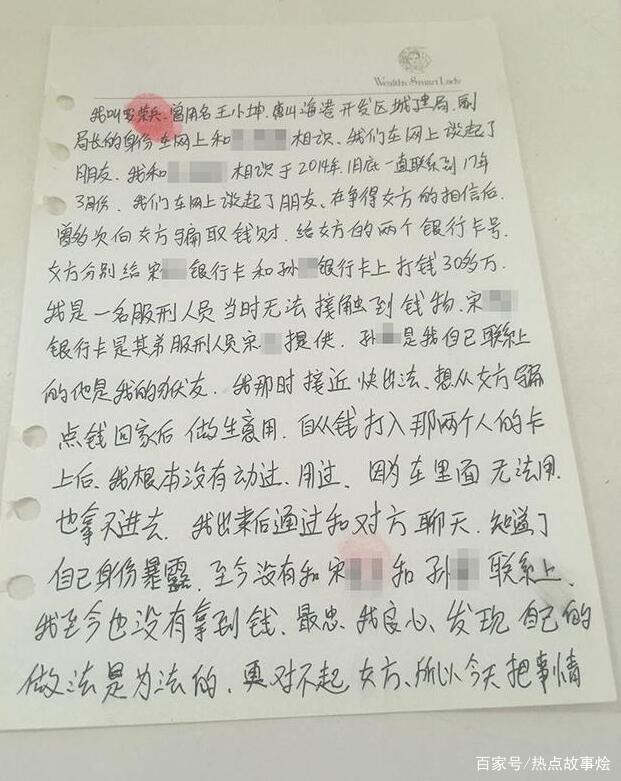 Wealthy Smart Lady
我叫罗荣兵、曾用名王小坤.唐山海港开发区城建局.副
局长的身份在网上和相识、我们在网上谈起了
朋友、我和相识于2014年.旧底一直联系到17年
3月份、我们在网上谈起了朋友、在争得女方的相信后
曾多次向女方骗取钱财.给女方的两个银行卡号
女方分别给宋银行卡和孙银行卡上打钱30多万.
我是一名服刑人员当时无法接触到钱物.宋
银行卡是其弟服刑人员宋提供.孙是我自己联系上
的他是我的狱友.我那时接近快出法、想从女方骗
点钱回家后做生意用.自从钱打入那两个人的卡
上后、我根本没有动过、用过、因为在里面无法用.
也拿不进去.我出来后通过和对方聊天.知道了
自己身份暴露.至今没有和宋和孙联系上、
我至今也没有拿到钱、最忠、我良心、发现自己的
做法是为法的、更对不起女方、所以今天把事情
百家号/热点故事烩